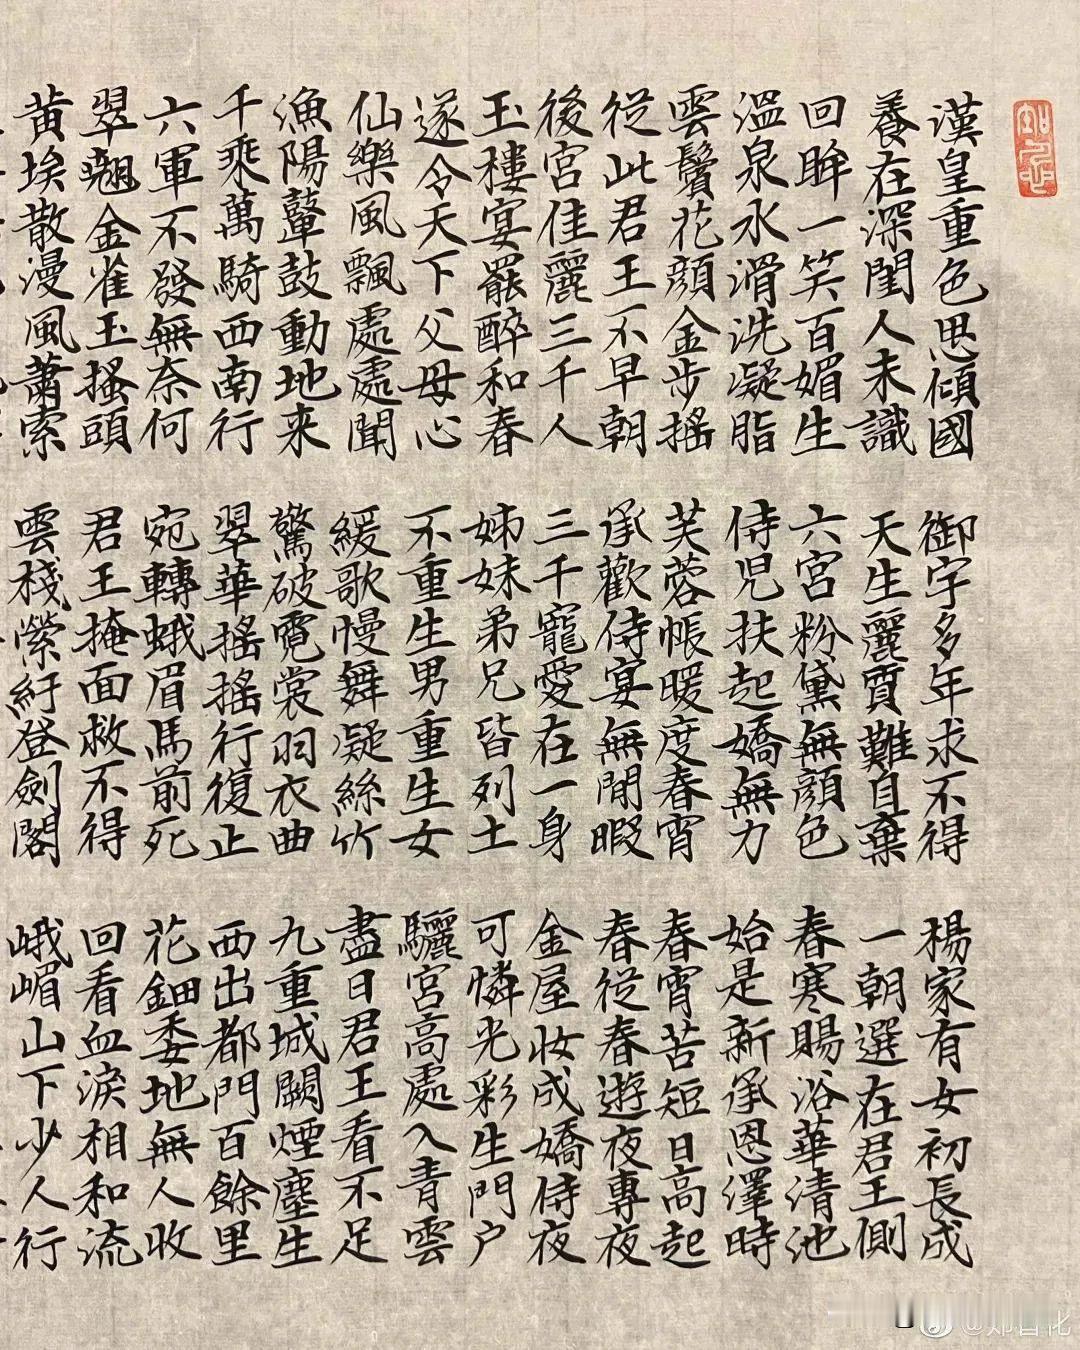 漢皇重色思傾國 御宇多年求不得 楊家有女初長成
養在深閨人未識 天生麗質難自棄 一朝選在君王側
回眸一笑百媚生 六宮粉黛無顏色 春寒賜浴華清池
溫泉水滑洗凝脂 侍児扶起嬌無力 始是新承恩澤時
雲鬢花顏金步搖 芙蓉帳暖度春宵 春宵苦短日高起
從此君王不早朝 承歡侍宴無閒暇 春從春遊夜專夜
後宮佳麗三千人 三千寵愛在一身 金屋妝成嬌侍夜
玉樓宴罷醉和春 姊妹弟兄皆列土 可憐光彩生門户
遂令天下父母心 不重生男重生女 驪宮高處入青雲
仙樂風飄處處聞 緩歌慢舞凝絲竹 盡日君王看不足
漁陽鼙鼓動地来 驚破霓裳羽衣曲 九重城闕煙塵生
千乘萬騎西南行 翠華搖搖行復止 西出都門百餘里
六軍不發無奈何 宛轉蛾眉馬前死 花鈿委地無人收
翠翹金雀玉搔頭 君王掩面救不得 回看血淚相和流
黃埃散漫風蕭索 雲棧縈紆登劍閣 峨嵋山下少人行